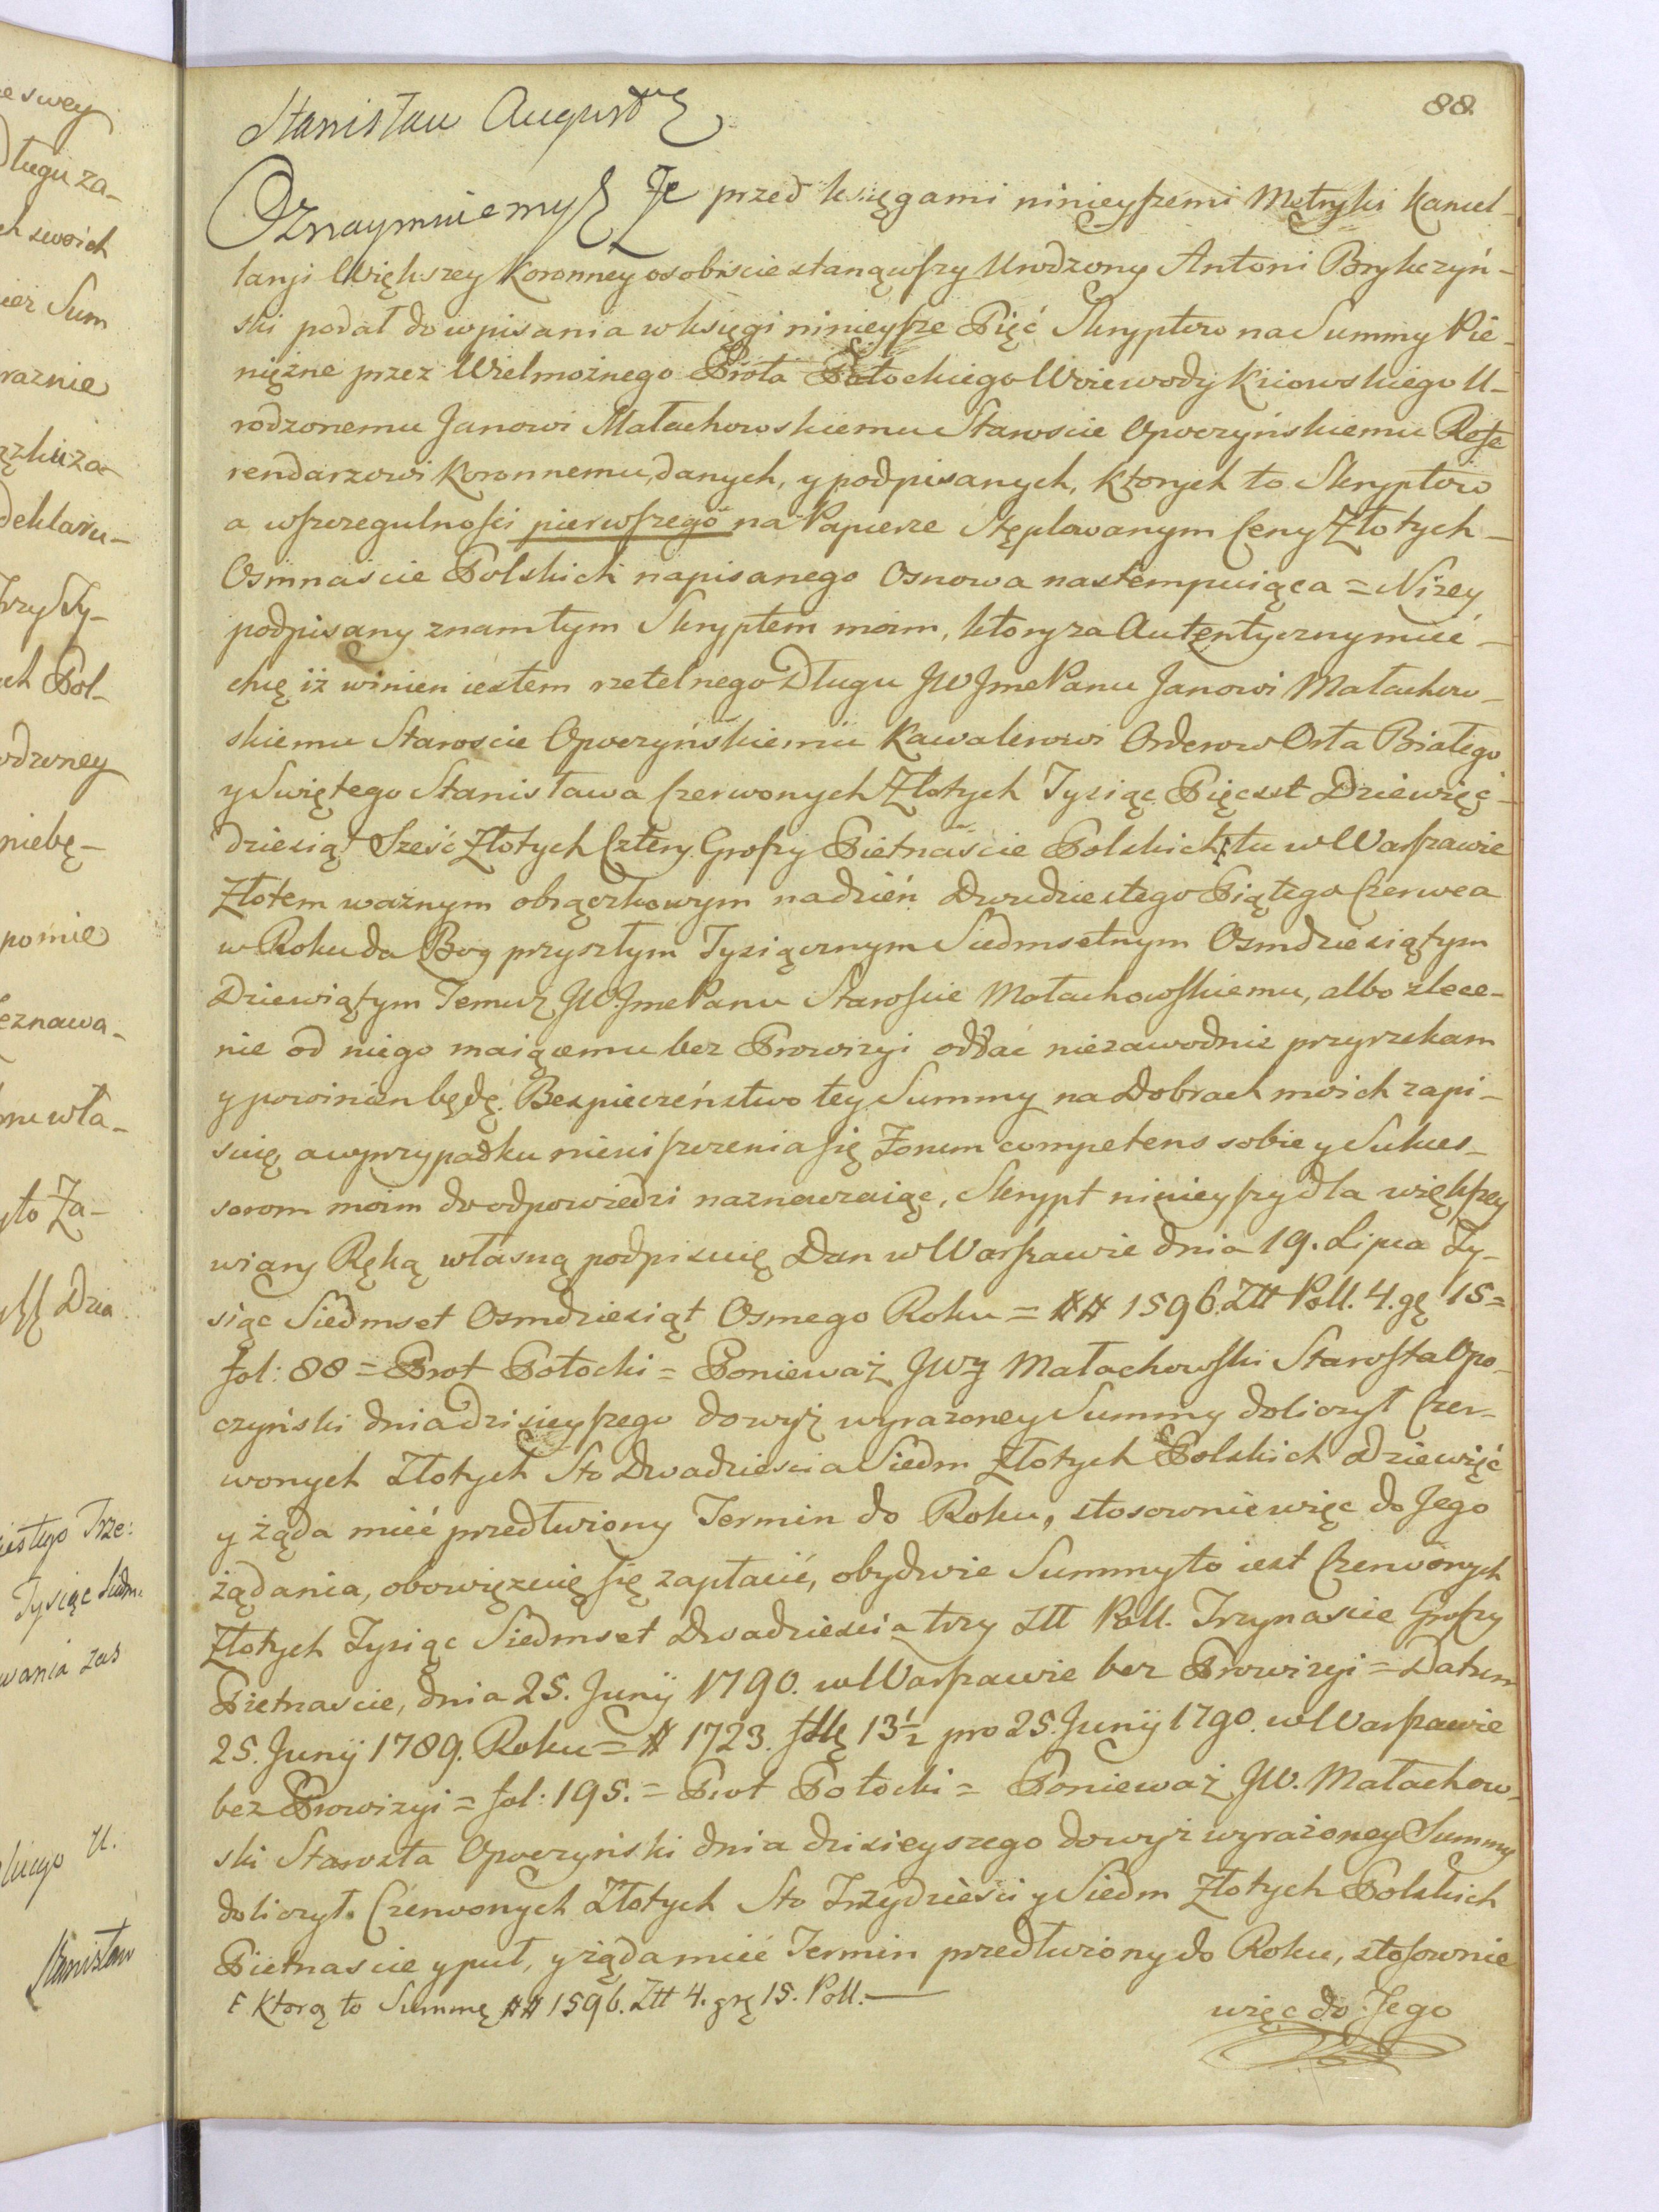 88.
Stanisław August
Oznaymuiemyſz Że przed księgami ninieyſzemi Metryki Kancel-
laryi Większey Koronney osobiscie stanąwſzy Urodzony Antoni Brykczyń-
ski podał do wpisania w księgi ninieyſze Pięć Skryptow na Summy Pie-
niężne przez Wielmożnego Prota Potockiego Woiewody Kiiowskiego U-
rodzonemu Janowi Małachowskiemu Staroscie Opoczyńskiemu Refe
rendarzowi Koronnemu, danych, y podpisanych, ktorych to Skryptow
a wſzczegulnoſci pierwſzego na Papierze Stęplowanym Ceny Złotych
Osmnaście Polskich napisanego Osnowa nastempuiąca = Niżey
podpisany znam tym Skryptem moim, ktory za Autentyczny mieć
chcę iż winien iestem rzetelnego Długu JW JmePanu Janowi Małachow-
skiemu Staroscie Opoczyńskiemu Kawalerowi Orderow Orła Białego
y Swiętego Stanisława Czerwonych Złotych Tysiąc Pięcset Dziewięć-
dziesiąt Sześć Złotych Cztery Groſzy Pietnaście Polskich F tu w Warſzawie
Złotem ważnym obrączkowym na dzień Dwudziestego Piątego Czerwca
w Roku da Bog przyszłym Tysiącznym Siedmsetnym Osmdziesiątym
Dziewiątym Temuż JW JmePanu Staroſcie Małachowſkiemu, albo zlece-
nie od niego maiącemu bez Prowizyi oddać niezawodnie przyrzekam
y powinien będę. Bezpieczeństwo tey Summy na Dobrach moich zapi-
suię a w przypadku nieuiſzczenia ſię Forum competens sobie y Sukces-
sorom moim do odpowiedzi naznaczaiąc, Skrypt ninieyſzy dla więkſzey
wiary Ręką własną podpisuię Dan w Warſzawie dnia 19. Lipca Ty-
siąc Siedmset Osmdziesiąt Osmego Roku = ## 1596. Złł Poll. 4. gę 15 =
fol: 88 = Prot Potocki = Ponieważ JWy Małachowſki Staroſta Opo-
czyński dnia dzisieyſzego do wyż wyrażoney Summy doliczył Czer-
wonych Złotych Sto Dwadziescia Siedm Złotych Polskich Dziewięć
y żąda mieć przedłużony Termin do Roku, stosownie więc do Jego
żądania, obowięzuię ſię zapłacić, obydwie Summy to iest Czerwonych
Złotych Tysiąc Siedmset Dwadziescia trzy Złł Poll. Trzynascie Groſzy
Pietnascie, dnia 25. Junÿ 1790. w Warſzawie bez Prowizyi = Datum
25. Junÿ 1789. Roku = # 1723. fllę 13½ pro 25. Junÿ 1790. w Warſzawie
bez Prowizyi = fol: 195. = Prot Potocki = Ponieważ JW. Małachow-
ski Starosta Opoczyński dnia dzisieyszego do wyż wyrażoney Summy
doliczył Czerwonych Złotych Sto Trzydzieści y Siedm Złotych Polskich
Pietnascie y puł, y żąda mieć Termin przedłużony do Roku, stoſownie
F Ktorą to Summę ## 1596. Złł 4. grę 15. Poll.
więc do Jego